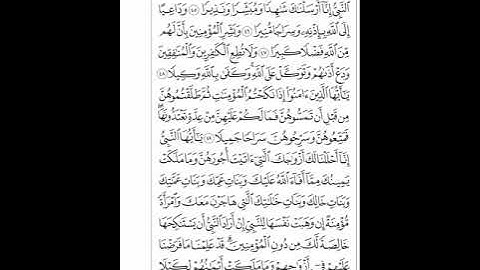 ٱلنَّبِىُّ إِنَّآ أَرْسَلْنَٰكَ شَٰهِدًا وَمُبَشِّرًا وَنَذِيرًا ٤٥ وَدَاعِيًا
إِلَى ٱللَّهِ بِإِذْنِهِۦ وَسِرَاجًا مُّنِيرًا ٤٦ وَبَشِّرِ ٱلْمُؤْمِنِينَ بِأَنَّ لَهُم
مِّنَ ٱللَّهِ فَضْلًا كَبِيرًا ٤٧ وَلَا تُطِعِ ٱلْكَٰفِرِينَ وَٱلْمُنَٰفِقِينَ
وَدَعْ أَذَىٰهُمْ وَتَوَكَّلْ عَلَى ٱللَّهِ وَكَفَىٰ بِٱللَّهِ وَكِيلًا ٤٨
يَٰٓأَيُّهَا ٱلَّذِينَ ءَامَنُوٓا۟ إِذَا نَكَحْتُمُ ٱلْمُؤْمِنَٰتِ ثُمَّ طَلَّقْتُمُوهُنَّ
مِن قَبْلِ أَن تَمَسُّوهُنَّ فَمَا لَكُمْ عَلَيْهِنَّ مِنْ عِدَّةٍ تَعْتَدُّونَهَا
فَمَتِّعُوهُنَّ وَسَرِّحُوهُنَّ سَرَاحًا جَمِيلًا ٤٩ يَٰٓأَيُّهَا ٱلنَّبِىُّ
إِنَّآ أَحْلَلْنَا لَكَ أَزْوَٰجَكَ ٱلَّٰتِىٓ ءَاتَيْتَ أُجُورَهُنَّ وَمَا مَلَكَتْ
يَمِينُكَ مِمَّآ أَفَآءَ ٱللَّهُ عَلَيْكَ وَبَنَاتِ عَمِّكَ وَبَنَاتِ عَمَّٰتِكَ
وَبَنَاتِ خَالِكَ وَبَنَاتِ خَٰلَٰتِكَ ٱلَّٰتِى هَاجَرْنَ مَعَكَ وَٱمْرَأَةً
مُّؤْمِنَةً إِن وَهَبَتْ نَفْسَهَا لِلنَّبِىِّ إِنْ أَرَادَ ٱلنَّبِىُّ أَن يَسْتَنكِحَهَا
خَالِصَةً لَّكَ مِن دُونِ ٱلْمُؤْمِنِينَ قَدْ عَلِمْنَا مَا فَرَضْنَا
عَلَيْهِمْ فِىٓ أَزْوَٰجِهِمْ وَمَا مَلَكَتْ أَيْمَٰنُهُمْ لِكَيْلَا